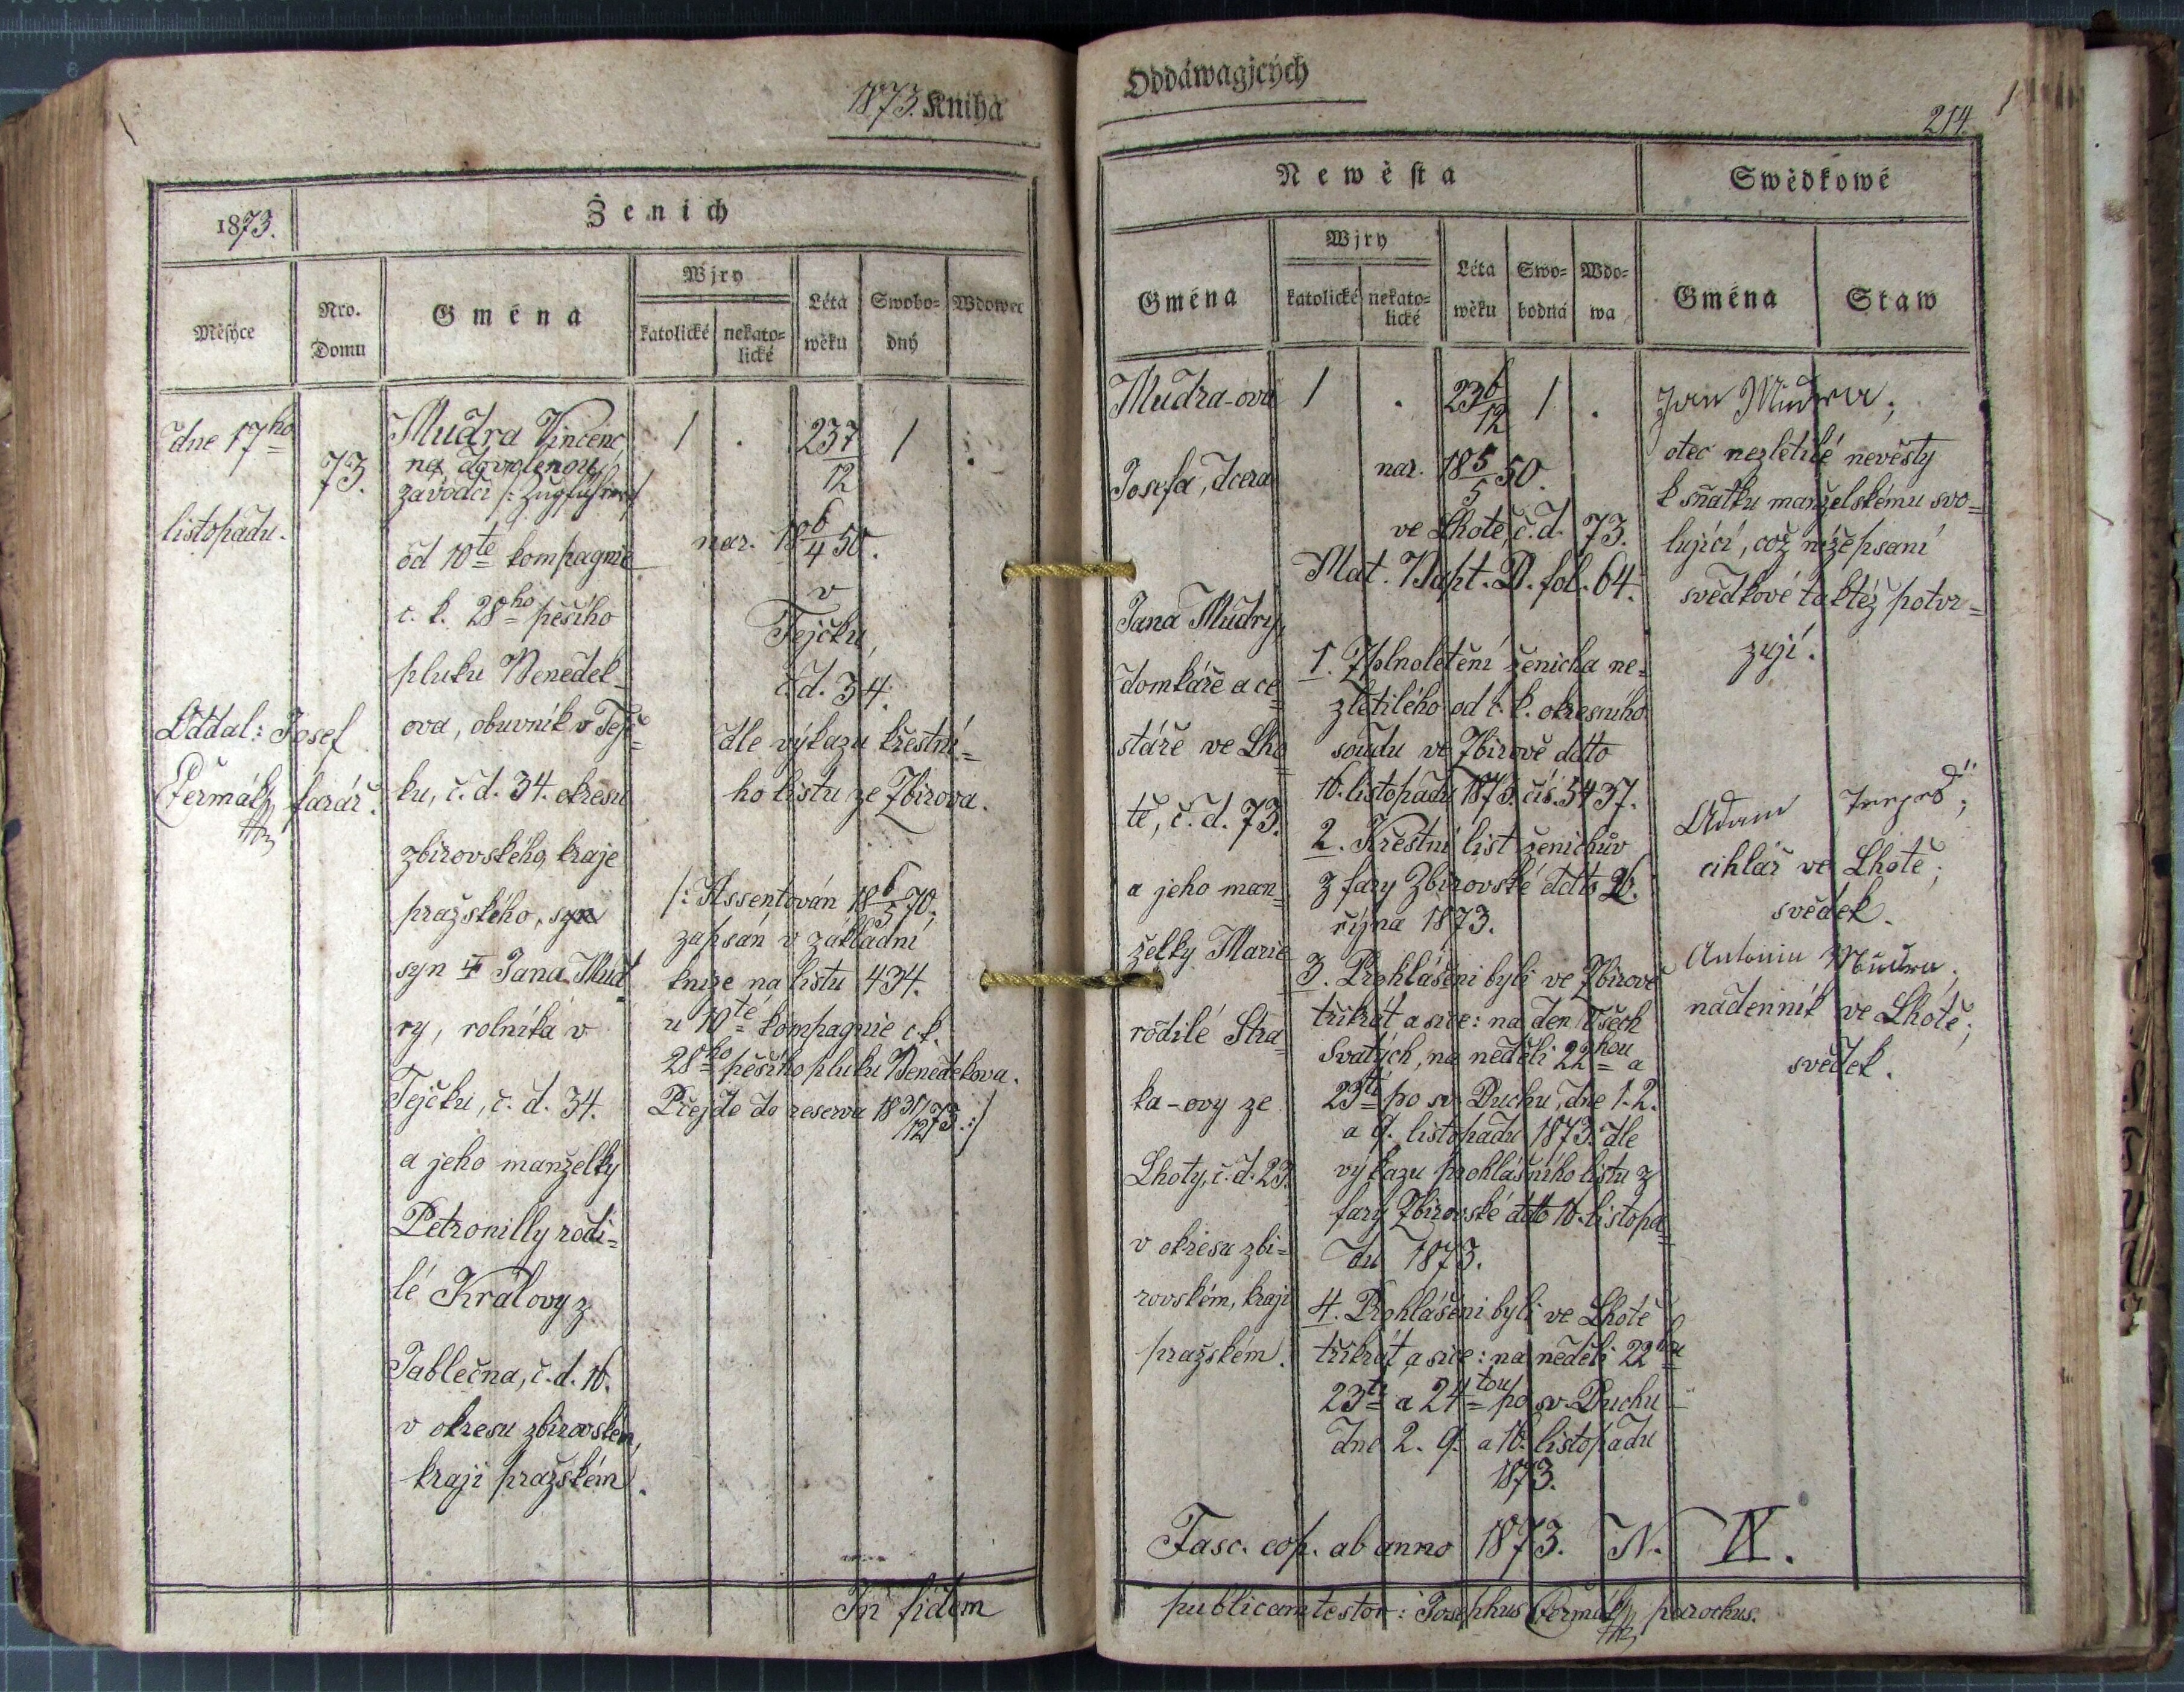 1873. Kniha
1873.
Ženich
Měsýce
Nro.
Domu
Gména
Wjry
katolické
nekato=
lické
Léta
wěku
Swobo=
dný
Wdowec
dne 17ho
listopadu.
Oddal: Josef
Čermák, farář.
73.
Mudra Vincenc,
na dovolenou
závodčí /: Zugsführer :/
od 10té kompagnie
c. k. 28ho pěšího
pluku Benedek=
ova, obuvník v Tej=
ku, č. d. 34. okresu
zbirovského, kraje
pražského, syn
syn Jana Mud=
ry, rolníka v
Tejčku, č. d. 34.
a jeho manželky
Petronilly rodi=
lé Královy z
Jablečna, č. d. 16.
v okresu zbirovském,
kraji pražském.
1
.
23 7/12
1
.
nar. 18 6/4 50.
v
Tejčku,
č. d. 34.
dle výkazu křestní=
ho listu ze Zbirova.
/: Assentován 18 6/5 70,
zapsán v základní
knize na listu 434.
u 10té kompagnie c. k.
28ho pěšího pluku Benedekova.
Přejde do reserva 18 31/12 73. :/
In fidem
Oddáwagjcých
214.
Newěsta
Swědkowé
Gména
Wjry
katolické
nekato=
lické
Léta
wěku
Swo=
bodná
Wdo=
wa
Gména
Staw
Mudra-ova
Josefa, dcera
Jana Mudry,
domkáře a ce=
stáře ve Lho=
tě, č. d. 73.
a jeho man=
želky Marie
rodilé Stra=
ka-ovy ze
Lhoty, č. d. 23.
v okresu zbi=
rovském, kraji
pražském.
1
.
23 6/12
1
.
nar. 18 5/5 50.
ve Lhotě, č. d. 73.
Mat. Bapt. D. fol. 64.
1. Zplnoletění ženicha ne=
zletilého od c. k. okresního
soudu ve Zbirově ddto
16. listopadu 1873. čís. 5437.
2. Křestní list ženichův
z fary Zbirovské ddto 26.
října 1873.
3. Prohlášeni byli ve Zbirově
třikrát a sice: na den Všech
Svatých, na neděli 22hou a
23tí po sv. Duchu, dne 1. 2.
a 9. listopadu 1873. dle
výkazu prohlášního listu z
fary Zbirovské ddto 10. listopa=
du 1873.
4. Prohlášeni byli ve Lhotě
třikrát a sice: na neděli 22hou
23tí a 24tou po sv. Duchu
dne 2. 9. a 16. listopadu
1873.
Jan Mudra,
otec nezletilé nevěsty
k sňatku manželskému svo=
lující, což nížepsaní
svědkové taktéž potvr=
zují.
Adam
cihlář ve Lhotě,
svědek.
Antonin Mudra,
nádenník ve Lhotě,
svědek.
Fasc. cop. ab anno 1873. N. VI.
publicam testor: Josephus Čermák, parochus.